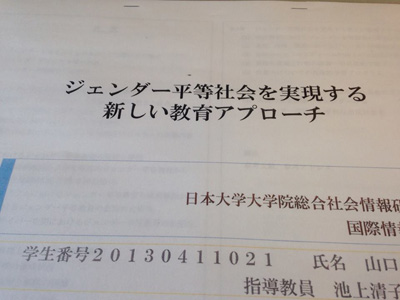 ジェンダー平等社会を実現する
新しい教育アプローチ
日本大学大学院総合社会情報研
国際情報
学生番号20130411021 氏名 山口
指導教員 池上清子